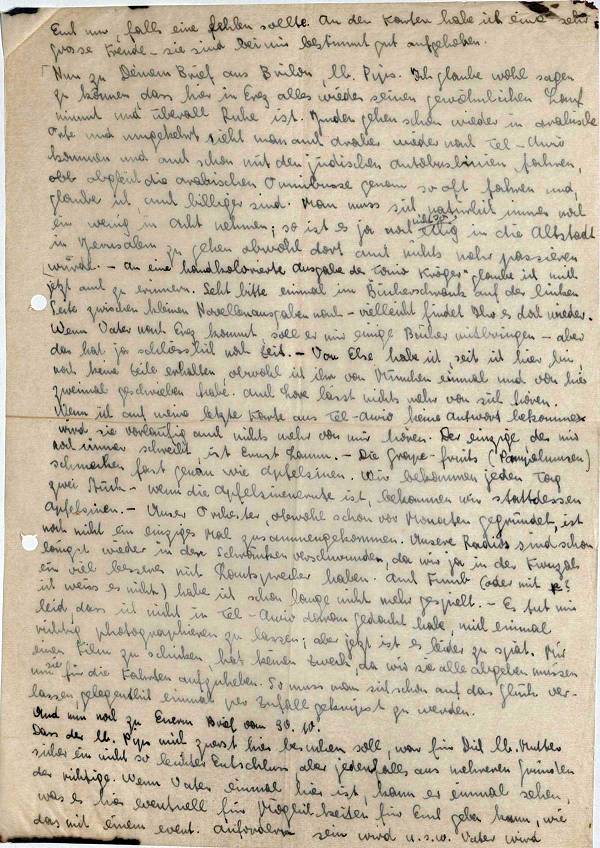 Euch nur, falls eine fehlen sollte. An den Karten habe ich eine sehr
grosse Freude - sie sind bei mir bestimmt gut aufgehoben.
Nun zu Deinem Brief aus Brilon, lb. Pips. Ich glaube wohl sagen
zu können dass hier in Erez alles wieder seinen gewöhnlichen Lauf
nimmt und überall Ruhe ist. Juden gehen schon wieder in arabische
Orte und umgekehrt sieht man auch Araber wieder nach Tel-Awiw
kommen und auch schon mit den jüdischen Autobuslinien fahren,
obgleich die arabischen Omnibusse genau so oft fahren und,
glaube ich auch billiger sind. Man muss sich natürlich immer noch
ein wenig in Acht nehmen; so ist es ja noch nicht in die Altstadt
in Jerusalem zu gehen obwohl dort auch nichts mehr passieren
würde. - An eine handkolorierte Ausgabe des "Tonio Kröger" glaube ich mich
jetzt auch zu erinnern. Seht bitte einmal im Bücherschrank auf der linken
Seite zwischen kleinen Novellenausgaben nach - vielleicht findet Ihr es dort wieder.
Wenn Vater nach Erez kommt soll er mir einige Bücher mitbringen - aber
das hat ja schliesslich noch Zeit. - Von Else habe ich, seit ich hier bin,
noch keine Zeile erhalten obwohl ich ihr von München einmal und von hier
zweimal geschrieben habe. Auch Lore lässt nichts mehr von sich hören.
Wenn ich auf meine letzte Karte aus Tel-Awiw keine Antwort bekomme
wird sie vorläufig auch nichts mehr von mir hören. Der einzige der mir
noch immer schreibt, ist Ernst Lamm. - Die Grape-fruits (Pampelmusen)
schmecken fast genau wie Apfelsinen. Wir bekommen jeden Tag
zwei Stück - wenn die Apfelsinenernte ist, bekommen wir stattdessen
Apfelsinen. - Unser Orchester, obwohl schon vor Monaten gegründet, ist
noch nicht ein einziges Mal zusammengekommen. Unsere Radios sind schon
längst wieder in den Schränken verschwunden, da wir ja in der Kwuzah
ein viel besseres mit Lautsprecher haben. Auch (oder mit
ich weiss es nicht) habe ich schon lange nicht mehr gespielt. - Es tut mir
leid, dass ich nicht in Tel-Awiw daran gedacht habe, mich einmal
richtig photographieren zu lassen; aber jetzt ist es leider zu spät. Mir
einen Film zu schicken, hat keinen Zweck, da wir sie alle abgeben müssen
um sie für die Fahrten aufzuheben. So muss man sich schon auf das Glück ver-
lassen, gelegentlich einmal per Zufall geknipst zu werden.
Und nun noch zu Euerm Brief vom 30. 10.
Dass der lb. Pips mich zuerst hier besuchen soll, war für Dich lb. Mutter
sicher ein nicht so leichter Entschluss aber jedenfalls aus mehreren Gründen
der richtige. Wenn Vater einmal hier ist, kann er einmal sehen,
was es hier eventuell für Möglichkeiten für Euch geben kann, wie
das mit einem event. Anfordern sein wird u.s.w. Vater wird